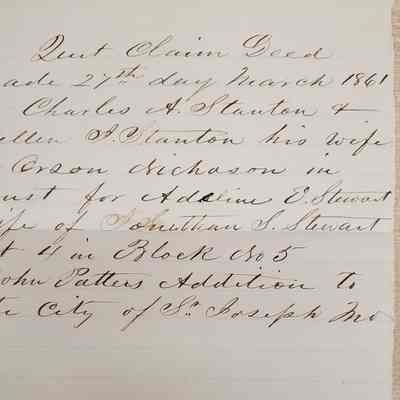 Quit Claim Deed
ade 27th day March 1861
Charles A. Stanton &
ellen J. Stanton his wife
Orson Nichason in
ust for Adeline E. Stewart
ife of Jonethan S. Stewart
t 4 in Block No 5
John Patters Addition to
e City of St. Joseph Mo